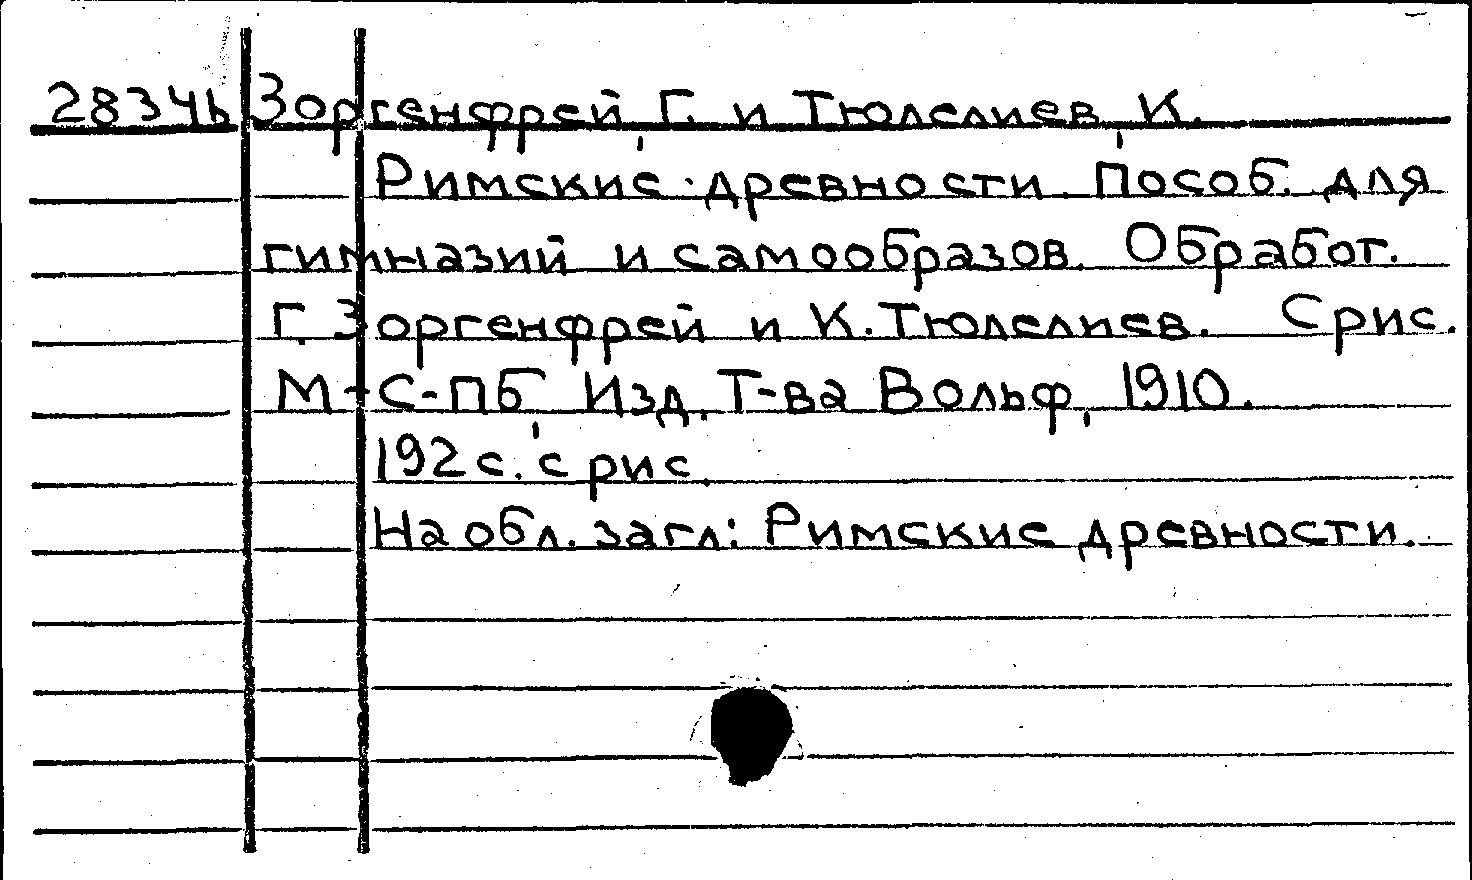 2834b Зоргенфрей, Г. и Тюлелиев, К.
Римские древности. Пособ. для
гимназий и самообразов. Обработ.
Г. Зоргенфрей и К. Тюлелиев. С рис.
М.-С-Пб, Изд. Т-ва Вольф, 1910.
192 с. с рис.
На обл. загл: Римские древности.